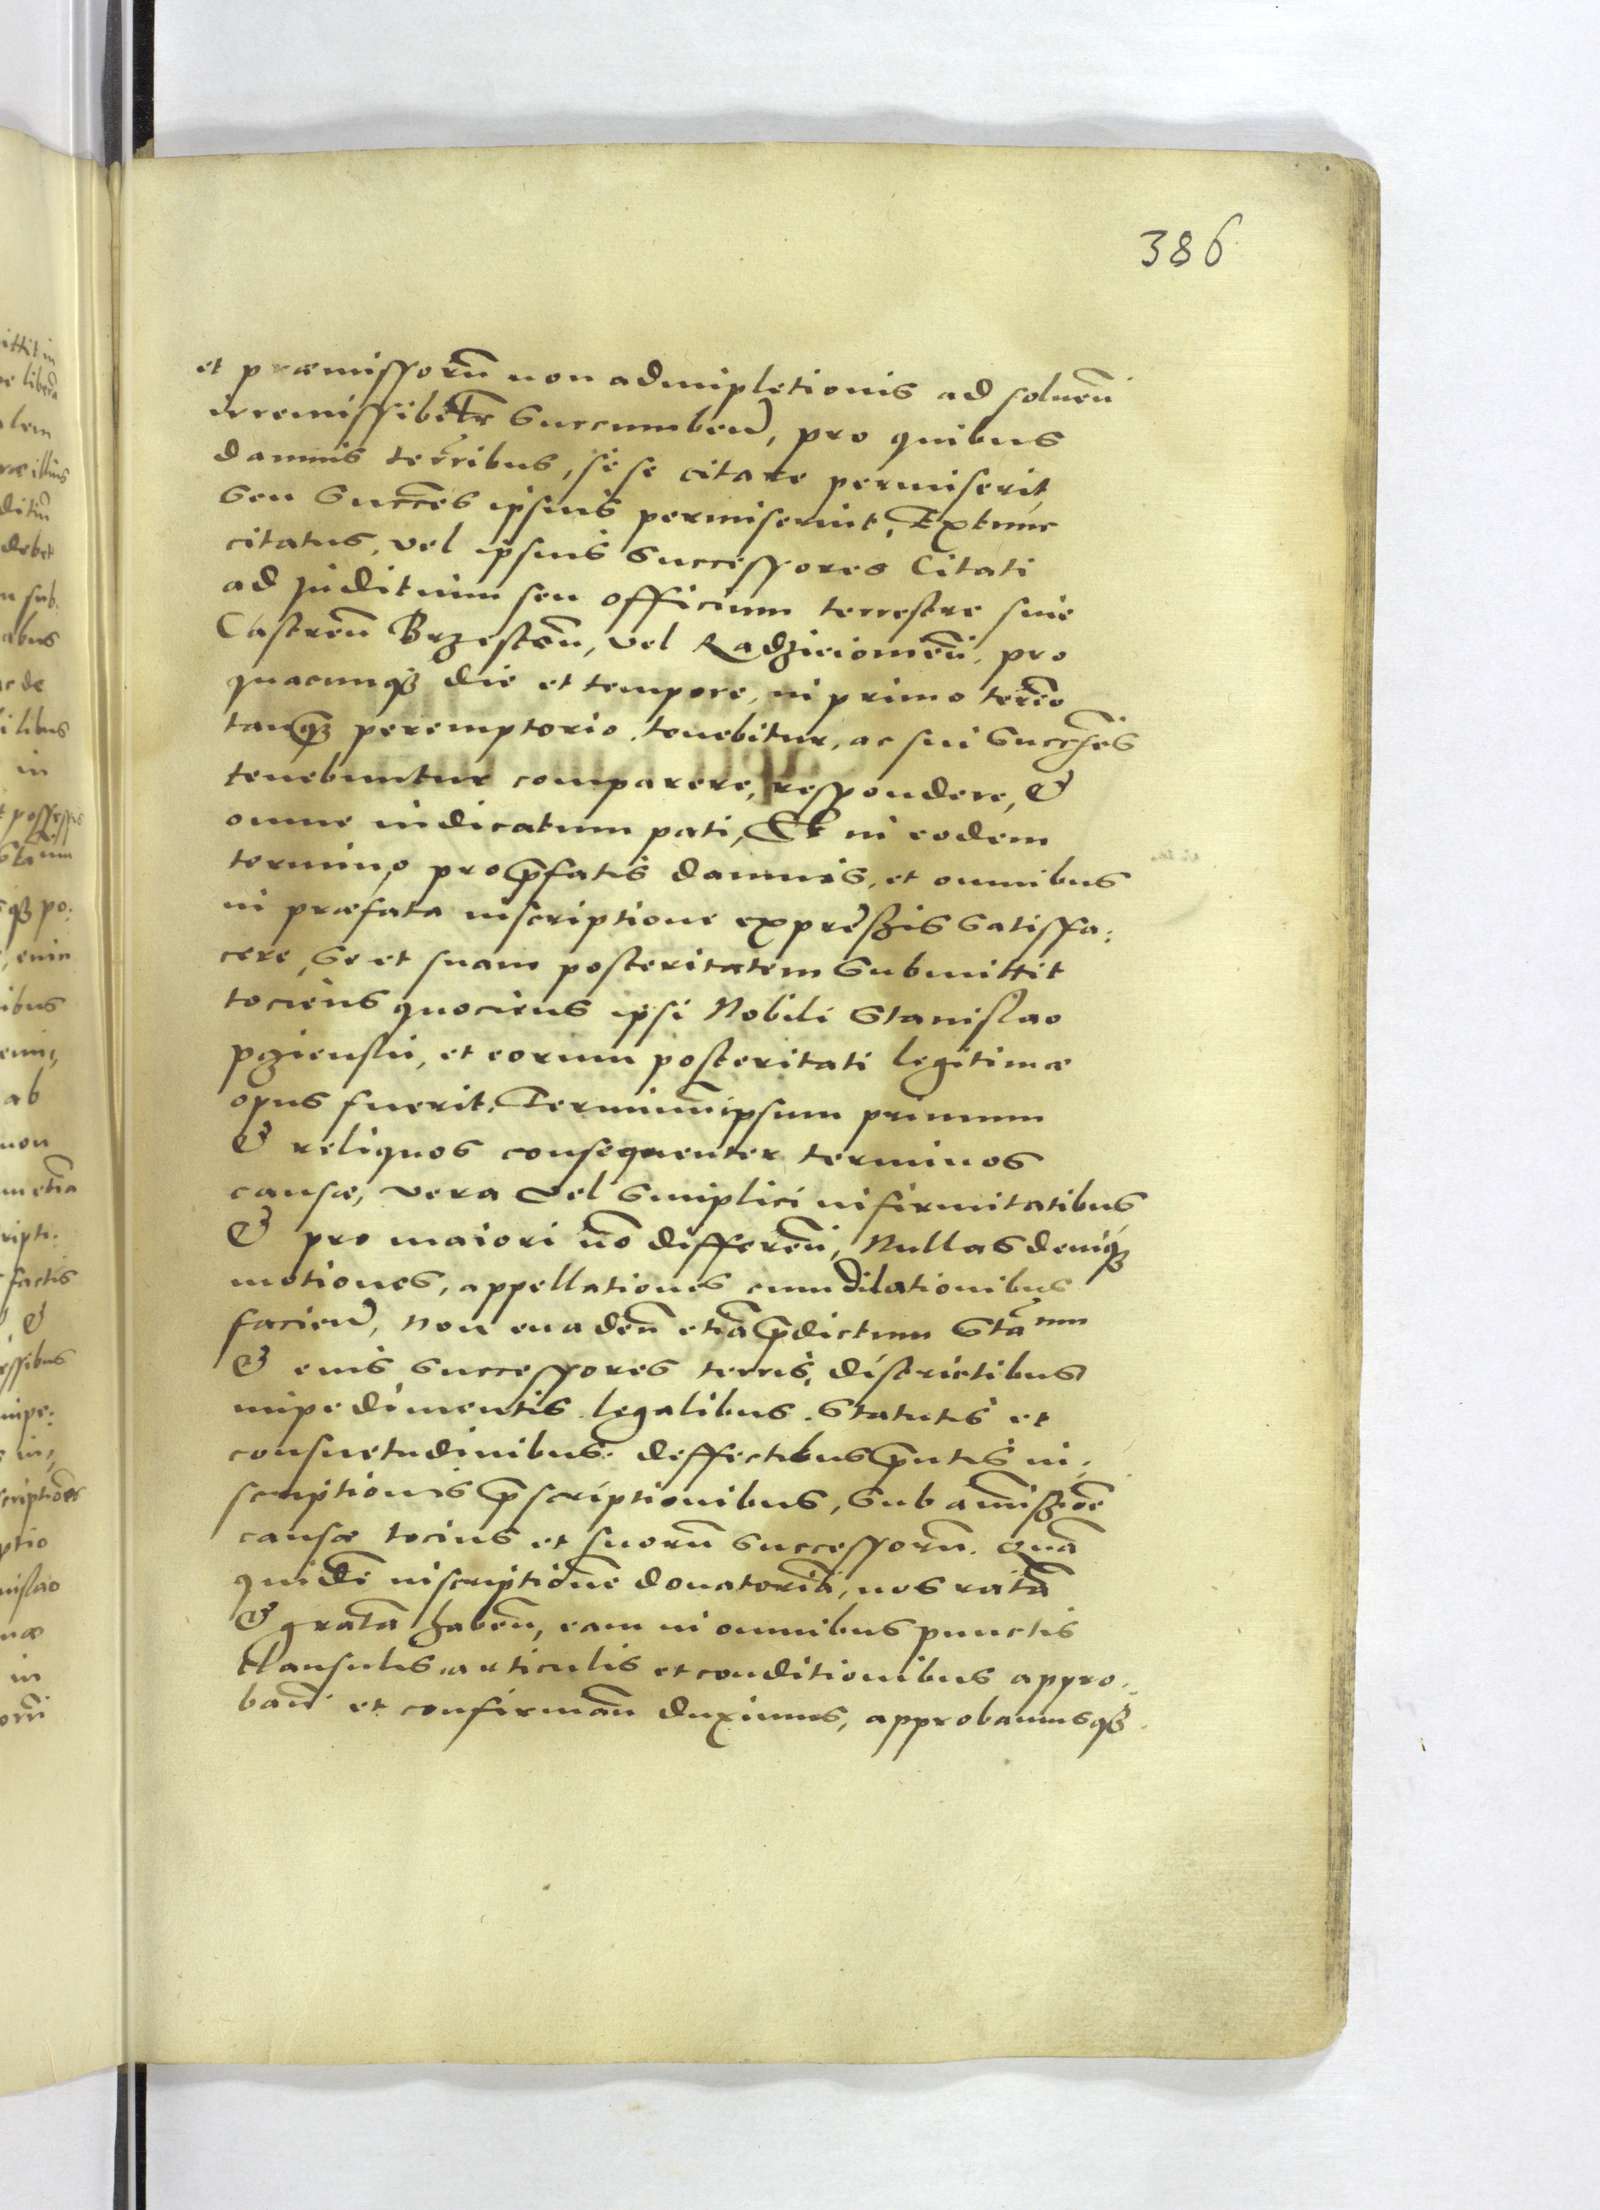 386
et præmissorũ non adimpletionis ad soluen̄
irremissibilr̄ Succumben̄, pro quibus
damnis terribus, se se citare permiserit,
seu Succes̄ ipsius permiserint, Extunc
citatus, vel ipsius Successores Citati
ad Juditium seu officium terrestre siue
Castren̄ Brzesten̄, vel Radzieiouien̄, pro
quacunq3 die et tempore, in primo termĩo
tanq̃3 peremptorio tenebitur, ac sui Succes̄s
tenebuntur comparere, respondere, &
omne iudicatum pati, Et in eodem
termino pro p̃fatis damnis, et omnibus
in præfata inscriptione expressis Satisfa:
cere, Se et suam posteritatem Submittit
tociens quociens ipsi Nobili Stanislao
et eorum posteritati legitimæ
opus fuerit. Terminum ipsum primum
& reliquos consequenter terminos
causæ, vera vel Simplici infirmitatibus
& pro maiori nō differen̄, Nullas deniq3
motiones, appellationes cum dilationibus
facien̄, Non euaden̄ etiā p̃dictum Stã̄um
& eius Successores terris, districtibus
impedimentis legalibus. Statutis et
consuetudinibus. deffectibus p̃ntis in:
scriptionis p̃scriptionibus, Sub amissiōe
causæ tocius et suorũ Successorũ. Quā
quidē inscriptionē donatoriā, nos ratā
& gratā haben̄, eam in omnibus punctis
Clausulis, articulis et conditionibus appro:
ban̄ et confirman̄ duximus, approbamusq3